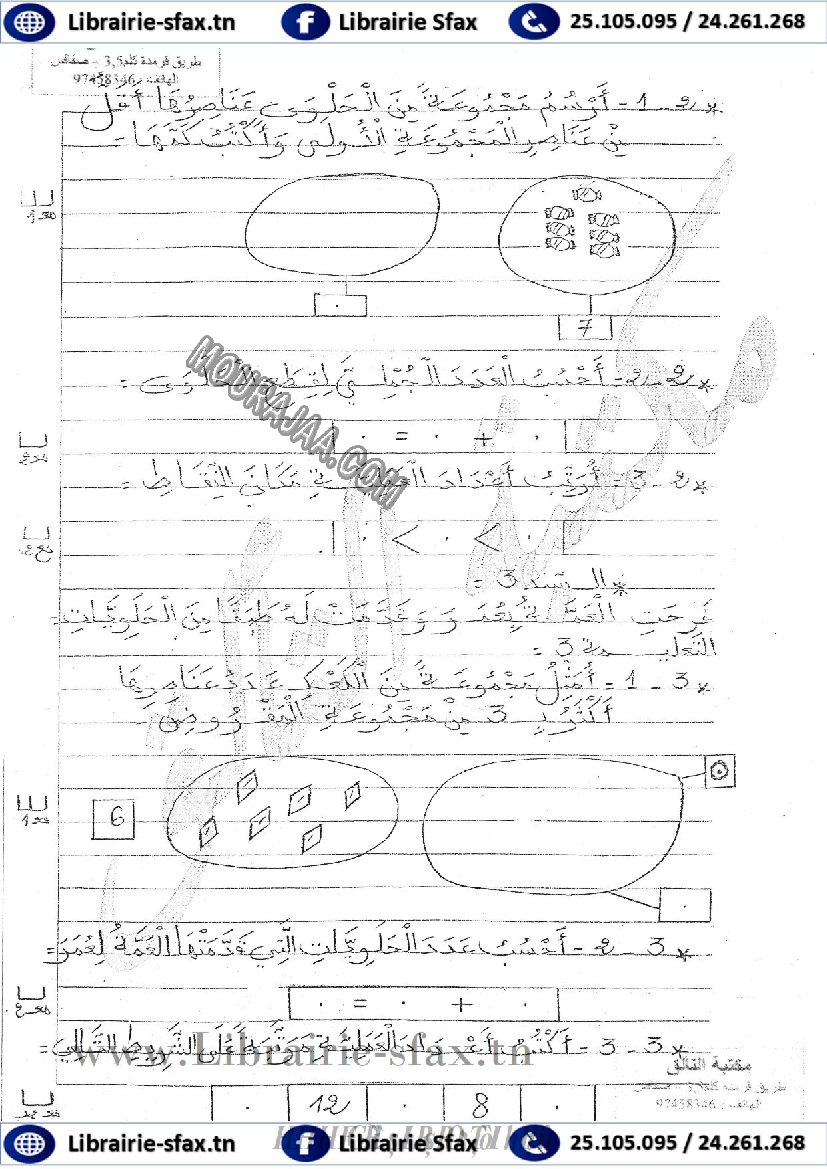 Librairie-sfax.tn / Librairie Sfax 25.105.095 / 24.261.268
طريق قرمدة كلم3,5 - صفاقس
الهاتف: 97458346
* 2 - 1 - أَرْسُمُ مَجْمُوعَةً مِنَ الْحَلْوَى عَنَاصِرُهَا أَقَلُّ
مِنْ عَنَاصِرِ الْمَجْمُوعَةِ الْأُولَى وَأَكْتُبُ كَمَّهَا -
مع1
.
7
MOURAJAA.COM
* 2 - 2 - أَحْسُبُ الْعَدَدَ الْجُمْلِيَّ لِقِطَعِ الْحَلْوَى =
. = . + .
* 2 - 3 - أُرَتِّبُ أَعْدَادَ الْعَمَلِيَّةِ مَكَانَ النِّقَاطِ =
. < . < .
* السند 3 =
فَرِحَتِ الْعَمَّةُ وَقَدَّمَتْ لَهُ طَبَقًا مِنَ الْحَلَوِيَّاتِ =
التعليمة 3 =
* 3 - 1 = أُمَثِّلُ مَجْمُوعَةً مِنَ الْكَعْكِ عَدَدُ عَنَاصِرِهَا
أَكْثَرُ بِـ 3 مِنْ مَجْمُوعَةِ الْمَقْرُوضِ -
مع1
6
.
* 3 - 2 - أَحْسُبُ عَدَدَ الْحَلَوِيَّاتِ الَّتِي قَدَّمَتْهَا الْعَمَّةُ لِعُمَرَ =
. = . + .
* 3 - 3 - أَكْتُبُ أَعْدَادَ الْعَمَلِيَّةِ عَلَى الشَّرِيطِ التَّالِي =
www.Librairie-sfax.tn
مكتبة التألق
طريق قرمدة كلم3,5 - صفاقس
الهاتف: 97458346
. 12 . 8 .
Librairie-sfax.tn / Librairie Sfax 25.105.095 / 24.261.268